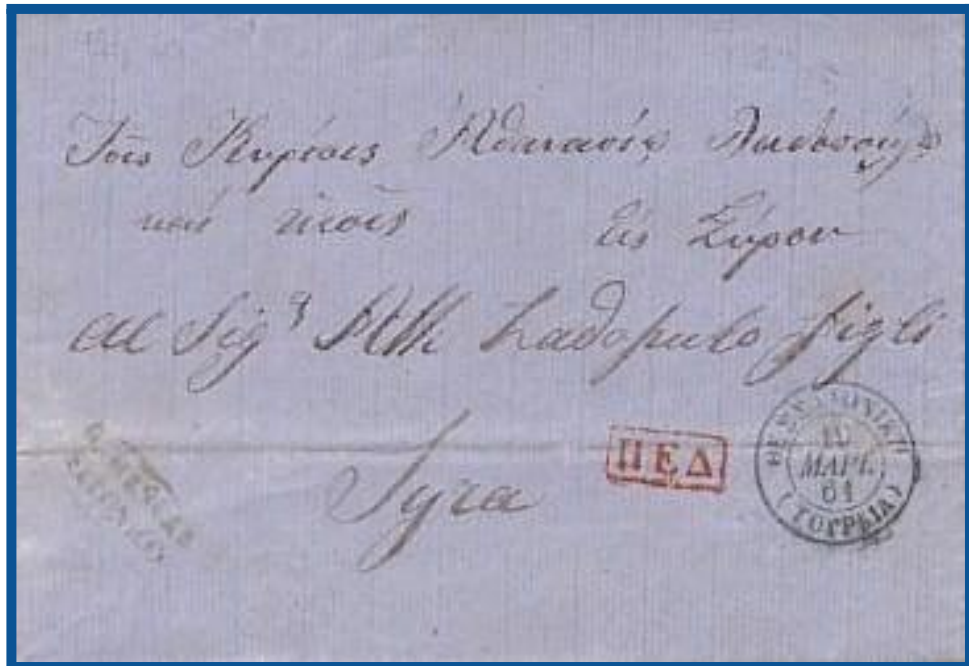 Τοῖς Κυρίοις Ἀθανασίῳ
καὶ υἱοῖς Εἰς Σύρον
Al Sig Ath Ladopulo figli
Syra
ΠΕΔ
ΘΕΣΣΑΛΟΝΙΚΗ
10
ΜΑΡΤ.
61
(ΤΟΥΡΚΙΑ)